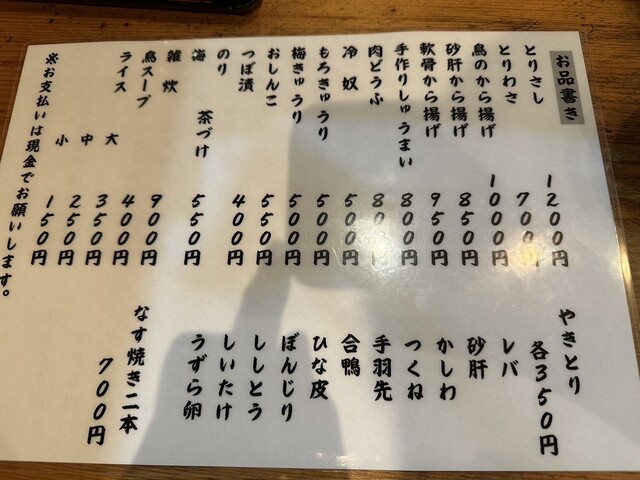 お品書き
とりさし 1200円
とりわさ 700円
鳥のから揚げ 1000円
砂肝から揚げ 850円
軟骨から揚げ 950円
手作りしゅうまい 800円
肉どうふ 800円
冷奴 500円
もろきゅうり 500円
梅きゅうり 500円
おしんこ 550円
つぼ漬 400円
のり
海 茶づけ 550円
雑炊 900円
鳥スープ 400円
ライス 大 350円
中 250円
小 150円
※お支払いは現金でお願いします。
やきとり
各350円
レバ
砂肝
かしわ
つくね
手羽先
合鴨
ひな皮
ぼんじり
ししとう
しいたけ
うずら卵
なす焼き二本
700円